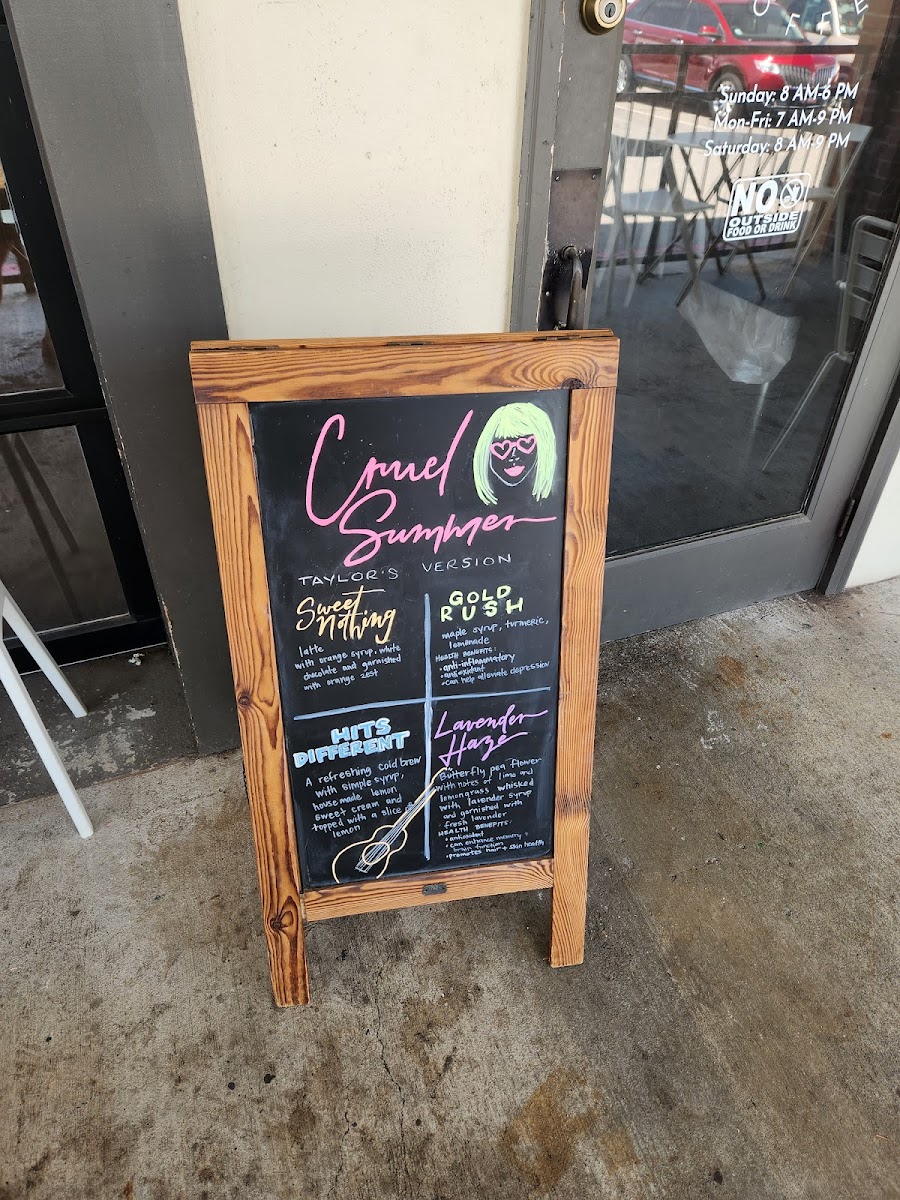 OFFEE
Sunday: 8 AM-6 PM
Mon-Fri: 7 AM-9 PM
Saturday: 8 AM-9 PM
NO
OUTSIDE
FOOD OR DRINK
Cruel
Summer
TAYLOR'S VERSION
Sweet
Nothing
latte
with orange syrup, white
chocolate and garnished
with orange zest
GOLD
RUSH
maple syrup, turmeric,
lemonade
HEALTH BENEFITS:
• anti-inflammatory
• antioxidant
• can help alleviate depression
HITS
DIFFERENT
A refreshing cold brew
with simple syrup,
house made lemon
sweet cream and
topped with a slice
lemon
Lavender
Haze
Butterfly pea flower
with notes of lime and
lemongrass whisked
with lavender syrup
and garnished with
fresh lavender
HEALTH BENEFITS:
• antioxidant
• can enhance memory +
brain function
• promotes hair + skin health